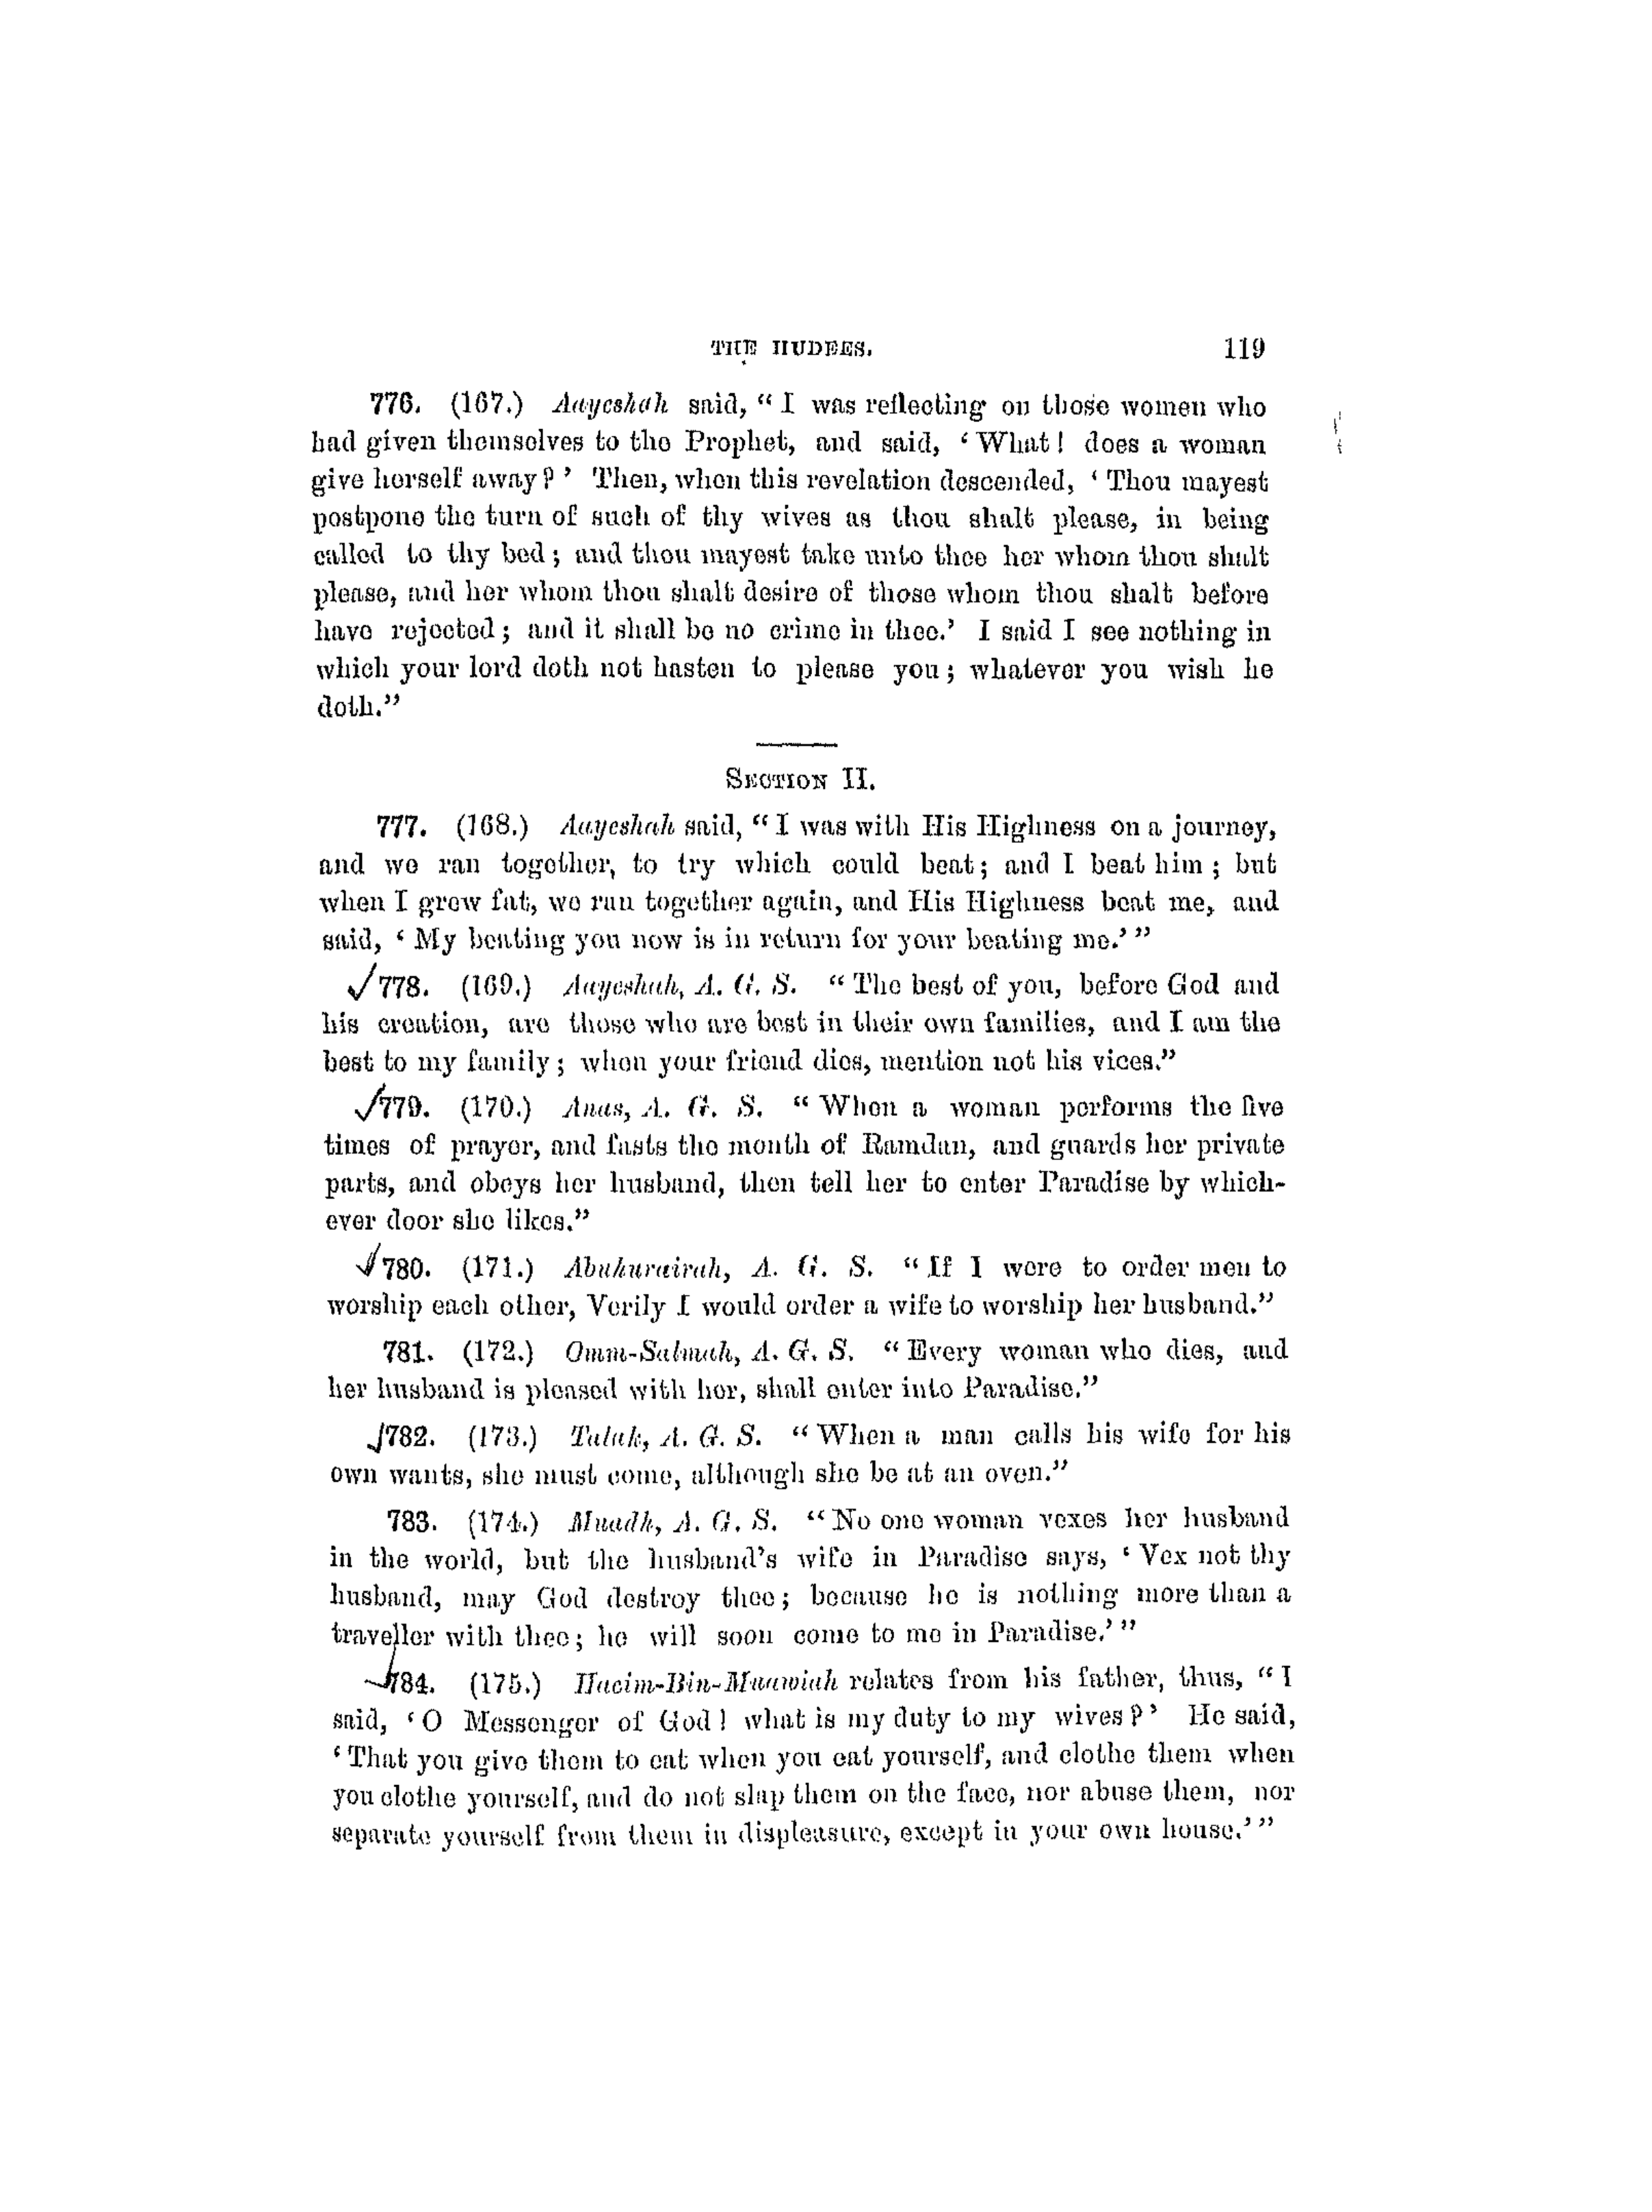 THE HUDEES. 119
776. (167.) Aayeshah said, “ I was reflecting on those women who
had given themselves to the Prophet, and said, ‘ What! does a woman
give herself away ? ’ Then, when this revelation descended, ‘ Thou mayest
postpone the turn of such of thy wives as thou shalt please, in being
called to thy bed ; and thou mayest take unto thee her whom thou shalt
please, and her whom thou shalt desire of those whom thou shalt before
have rejected ; and it shall be no crime in thee.’ I said I see nothing in
which your lord doth not hasten to please you ; whatever you wish he
doth.”
SECTION II.
777. (168.) Aayeshah said, “ I was with His Highness on a journey,
and we ran together, to try which could beat ; and I beat him ; but
when I grew fat, we ran together again, and His Highness beat me, and
said, ‘ My beating you now is in return for your beating me.’ ”
778. (169.) Aayeshah, A. G. S. “ The best of you, before God and
his creation, are those who are best in their own families, and I am the
best to my family ; when your friend dies, mention not his vices.”
779. (170.) Anas, A. G. S. “ When a woman performs the five
times of prayer, and fasts the month of Ramdan, and guards her private
parts, and obeys her husband, then tell her to enter Paradise by which-
ever door she likes.”
780. (171.) Abuhurairah, A. G. S. “ If I were to order men to
worship each other, Verily I would order a wife to worship her husband.”
781. (172.) Omm-Salmah, A. G. S. “ Every woman who dies, and
her husband is pleased with her, shall enter into Paradise.”
782. (173.) Talak, A. G. S. “ When a man calls his wife for his
own wants, she must come, although she be at an oven.”
783. (174.) Muadh, A. G. S. “ No one woman vexes her husband
in the world, but the husband’s wife in Paradise says, ‘ Vex not thy
husband, may God destroy thee ; because he is nothing more than a
traveller with thee ; he will soon come to me in Paradise.’ ”
784. (175.) Hacim-Bin-Maawiah relates from his father, thus, “ I
said, ‘ O Messenger of God ! what is my duty to my wives ? ’ He said,
‘ That you give them to eat when you eat yourself, and clothe them when
you clothe yourself, and do not slap them on the face, nor abuse them, nor
separate yourself from them in displeasure, except in your own house.’ ”